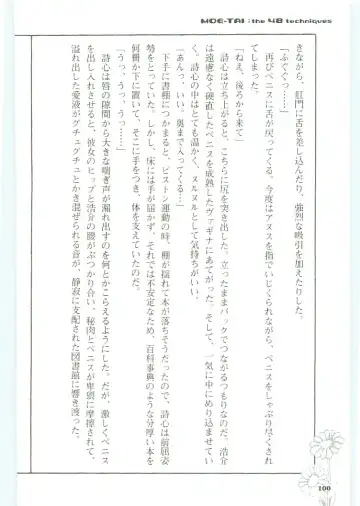 MOE-TAI : the 48 techniques
きながら、肛門に舌を差し込んだり、強烈な吸引を加えたりした。
「ふぐぐっ……」
再びペニスに舌が戻ってくる。今度はアヌスを指でいじくられながら、ペニスをしゃぶり尽くされ
てしまった。
「ねえ、後ろから来て」
詩心は立ち上がると、こちらに尻を突き出した。立ったままバックでつながるつもりなのだ。浩介
は遠慮なく硬直したペニスを成熟したヴァギナにあてがった。そして、一気に中にめり込ませてい
く。詩心の中はとても温かく、ヌルヌルとして気持ちがいい。
「あんっ、いい。奥まで入ってくる……」
下手に書棚につかまると、ピストン運動の時、棚が揺れて本が落ちそうだったので、詩心は前屈姿
勢をとっていた。しかし、床には手が届かず、それでは不安定なため、百科事典のような分厚い本を
何冊か下に置いて、そこに手をつき、体を支えていたのだ。
「うっ、うっ、うっ……」
詩心は唇の隙間から大きな喘ぎ声が漏れ出すのを何とかこらえるようにした。だが、激しくペニス
を出し入れさせると、彼女のヒップと浩介の腰がぶつかり合い、秘肉とペニスが卑猥に摩擦されて、
溢れ出した愛液がグチュグチュとかき混ぜられる音が、静寂に支配された図書館に響き渡った。
100